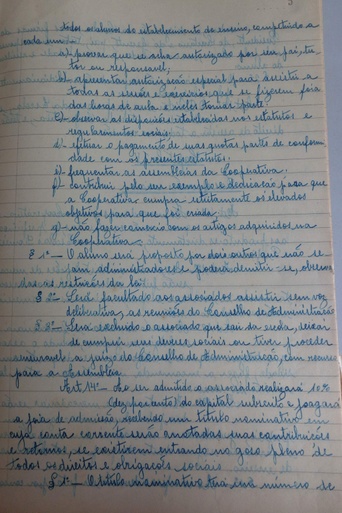 todos os alunos do estabelecimento de ensino, competindo a
cada um:
a) provar que se acha autorizado por seu pai, tu-
tor ou responsavel;
b) apresentar autorização especial para assistir a
todas as sessões e exercicios que se fizerem fora
das horas de aula e neles tomar parte;
c) observar as disposições estabelecidas nos estatutos e
regulamentos sociais;
d) efetuar o pagamento de suas quotas partes de confor-
dade com os presentes estatutos;
e) frequentar as assembléias da Cooperativa;
f) contribuir pelo seu exemplo e dedicação para que
a Cooperativa cumpra retamente os elevados
objetivos para que foi criada;
g) não fazer comercio com os artigos adquiridos na
Cooperativa.
§ 1º — O aluno será proposto por dois outros que não se-
jam administradores e poderá demitir-se, observa-
das as restrições da lei.
§ 2º — Será facultado aos associados assistir sem voz
deliberativa, as reuniões do Conselho de Administração
§ 3º — Será excluido o associado que sair da escola, deixar
de cumprir seus deveres sociais ou tiver proceder
a juizo do Conselho de Administração, com recurso
para a Assembléia.
Art. 14º — Ao ser admitido o associado realizará 10%
(dez por cento) do capital subscrito e pagará
a joia de admissão, recebendo um titulo nominativo em
cuja conta corrente serão anotadas suas contribuições
e retornos, se existirem entrando no gozo pleno de
todos os direitos e obrigações sociais.
§ 1º — O titulo nominativo terá um numero de